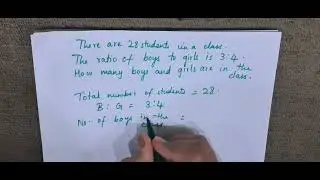 There are 28 students in a class.
The ratio of boys to girls is 3:4.
How many boys and girls are in the
class.
Total number of students = 28.
B : G = 3:4
No. of boys in the =
class